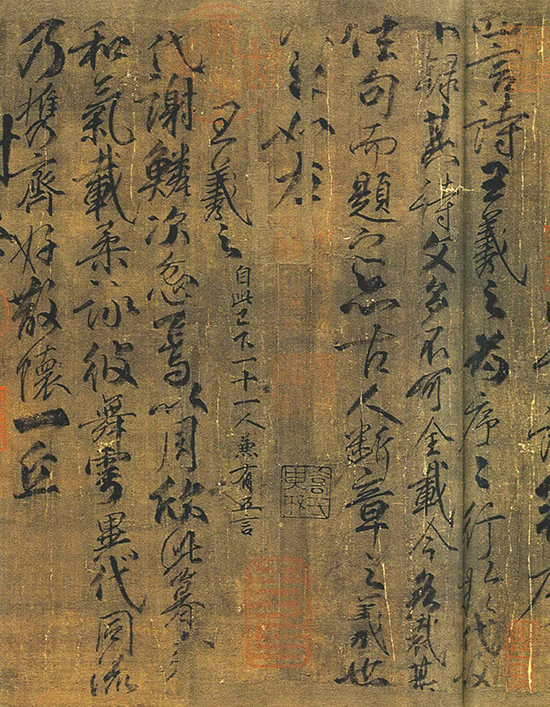 四言詩王羲之為序〻行於代故
不錄其詩文多不可全載今各裁其
佳句而題之亦古人斷章之義也
如左
王羲之自此已下一十一人兼有五言
代謝鱗次忽焉以周欣此暮春
和氣載柔詠彼舞雩異代同流
乃攜齊好散懷一丘